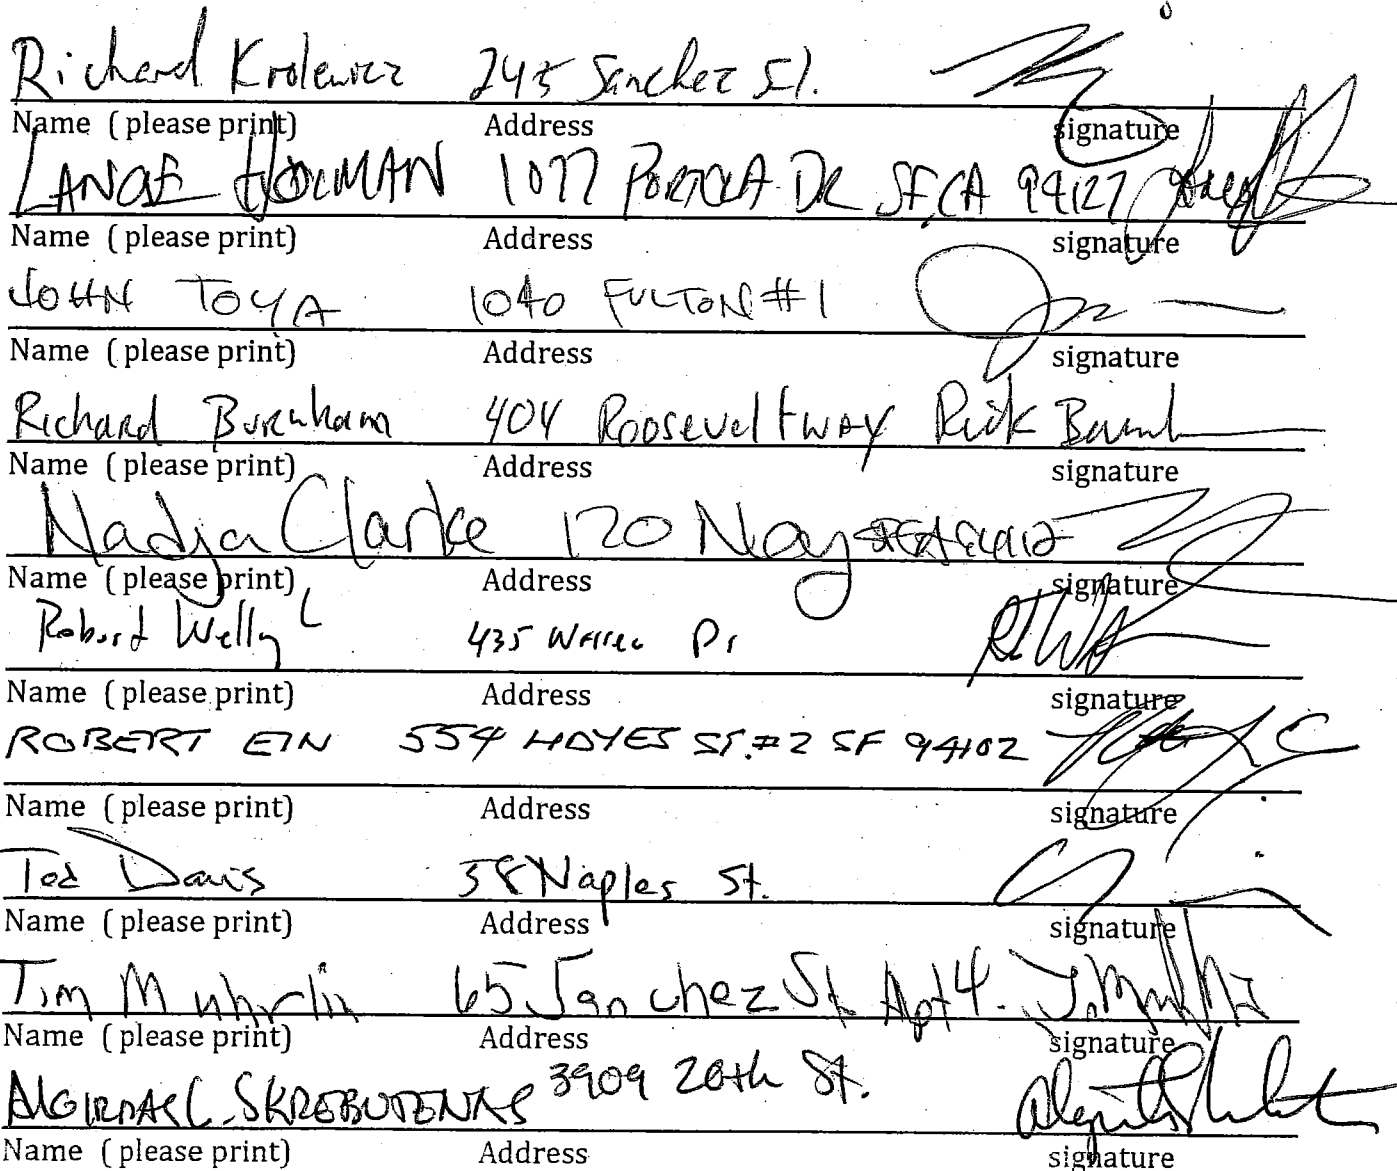 Richard Krolewicz 245 Sanchez St.
Name (please print) Address signature
LANCE HOLMAN 1077 PORTOLA DR SF, CA 94127
Name (please print) Address signature
JOHN TOYA 1040 FULTON #1
Name (please print) Address signature
Richard Burnham 404 Roosevelt WAY Rick
Name (please print) Address signature
Nadja Clarke 120 Noy
Name (please print) Address signature
Robert 435 Dr
Name (please print) Address signature
ROBERT EIN 554 HAYES ST. #2 SF 94102
Name (please print) Address signature
Ted Davis 58 Naples St.
Name (please print) Address signature
Tim Muhrlin 65 Sanchez St Apt 4.
Name (please print) Address signature
ALGIRDAS C. SKREBUTENAS 3909 20th St.
Name (please print) Address signature